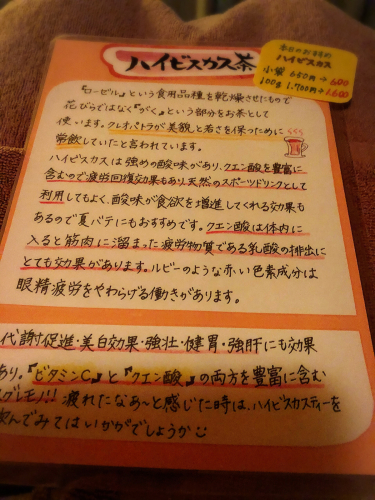 ハイビスカス茶
本日のおすすめ
ハイビスカス
小袋 650円→600
100g 1,700円→1,600
『ローゼル』という食用品種を乾燥させたもので
花びらではなく『がく』という部分をお茶として
使います。クレオパトラが美貌と若さを保つために
常飲していたと言われています。
ハイビスカスは強めの酸味があり、クエン酸を豊富に
含むので疲労回復効果もあり天然のスポーツドリンクとして
利用してもよく、酸味が食欲を増進してくれる効果も
あるので夏バテにもおすすめです。クエン酸は体内に
入ると筋肉に溜まった疲労物質である乳酸の排出に
とても効果があります。ルビーのような赤い色素成分は
眼精疲労をやわらげる働きがあります。
代謝促進・美白効果・強壮・健胃・強肝にも効果
あり。『ビタミンC』と『クエン酸』の両方を豊富に含む
スグレモノ!! 疲れたなあ〜と感じた時は、ハイビスカスティーを
飲んでみてはいかがでしょうか